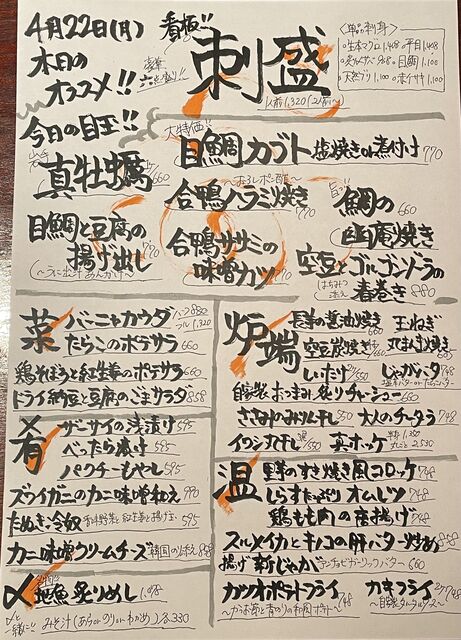 4月22日(月)
本日の
オススメ!!
看板!!
豪華
六点盛り!!
刺盛
1人前1,320(2人前〜)
〈単品刺身〉
・生本マグロ1,408 ・平目1,408
・目鯛1,100
・ホタテ1,100
今日の目玉!!
真牡蠣
660
目鯛と豆腐の
揚げ出し
770
大特価!!
目鯛カブト塩焼きor煮付け
770
〜おろしポン酢〜
合鴨ハラミ焼き
770
合鴨ササミの
味噌カツ
鯛の
幽庵焼き
660
空豆とゴルゴンゾラの
春巻き
はちみつ
添え
880
菜
バーニャカウダ
ハーフ880
フル1,320
たらこのポテサラ
660
鶏そぼろと紅生姜のポテサラ
660
ドライ納豆と豆腐のごまサラダ
858
肴
ザーサイの浅漬け
595
べったら漬け
595
パクチーもやし
595
ズワイガニのカニ味噌和え
990
たぬき冷奴
595
カニ味噌クリームチーズ
韓国のり添え
858
〆
地魚炙りめし
1,098
〆と
一緒に!!
みそ汁(あらorのりorわかめ)各330
炉端
長芋の醤油焼き
660
玉ねぎ
空豆炭焼き
丸まんま焼き
しいたけ
じゃがバター
自家製おつまみ炙りチャーシュー
660
ささみのみりん干し
550
大人のチータラ
748
イワシ丸干し
550
真ホッケ
半身1,350
丸ごと2,530
温
里芋のすき焼き風コロッケ
748
しらすたっぷりオムレツ
748
鶏もも肉の唐揚げ
748
スルメイカとキノコの肝バター炒め
858
揚げ新じゃが
アンチョビガーリックバター
660
カツオポテトフライ
748
カキフライ
〜自家製タルタルソース〜